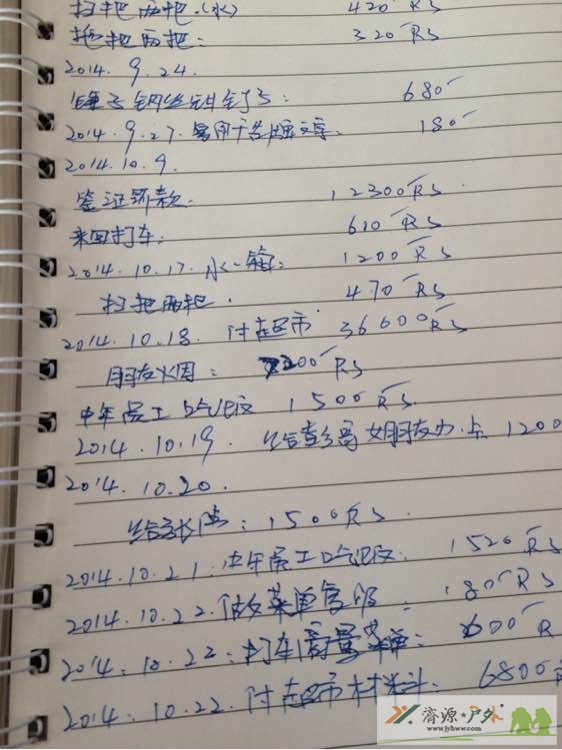 扫把两把.(水) 420 RS
拖把两把: 320 RS
2014. 9. 24.
680
2014. 9. 27. 180
2014. 10. 9.
签证 款. 12300 RS
来回打车: 610 RS
2014. 10. 17. 水一箱: 1200 RS
扫把两把. 470 RS
2014. 10. 18. 付超市 36600 RS
朋友火因: 200 RS
中午员工吃饭 1500 RS
2014. 10. 19. 给 女朋友 1200
2014. 10. 20.
给 : 1500 RS.
2014. 10. 21. 中午员工吃饭. 1520 RS
2014. 10. 22. 做菜单复印 : 80 RS
2014. 10. 22: 打车 菜单: 600 R
2014. 10. 22. 付超市材料: 6800
济源·户外
www.jyhww.com